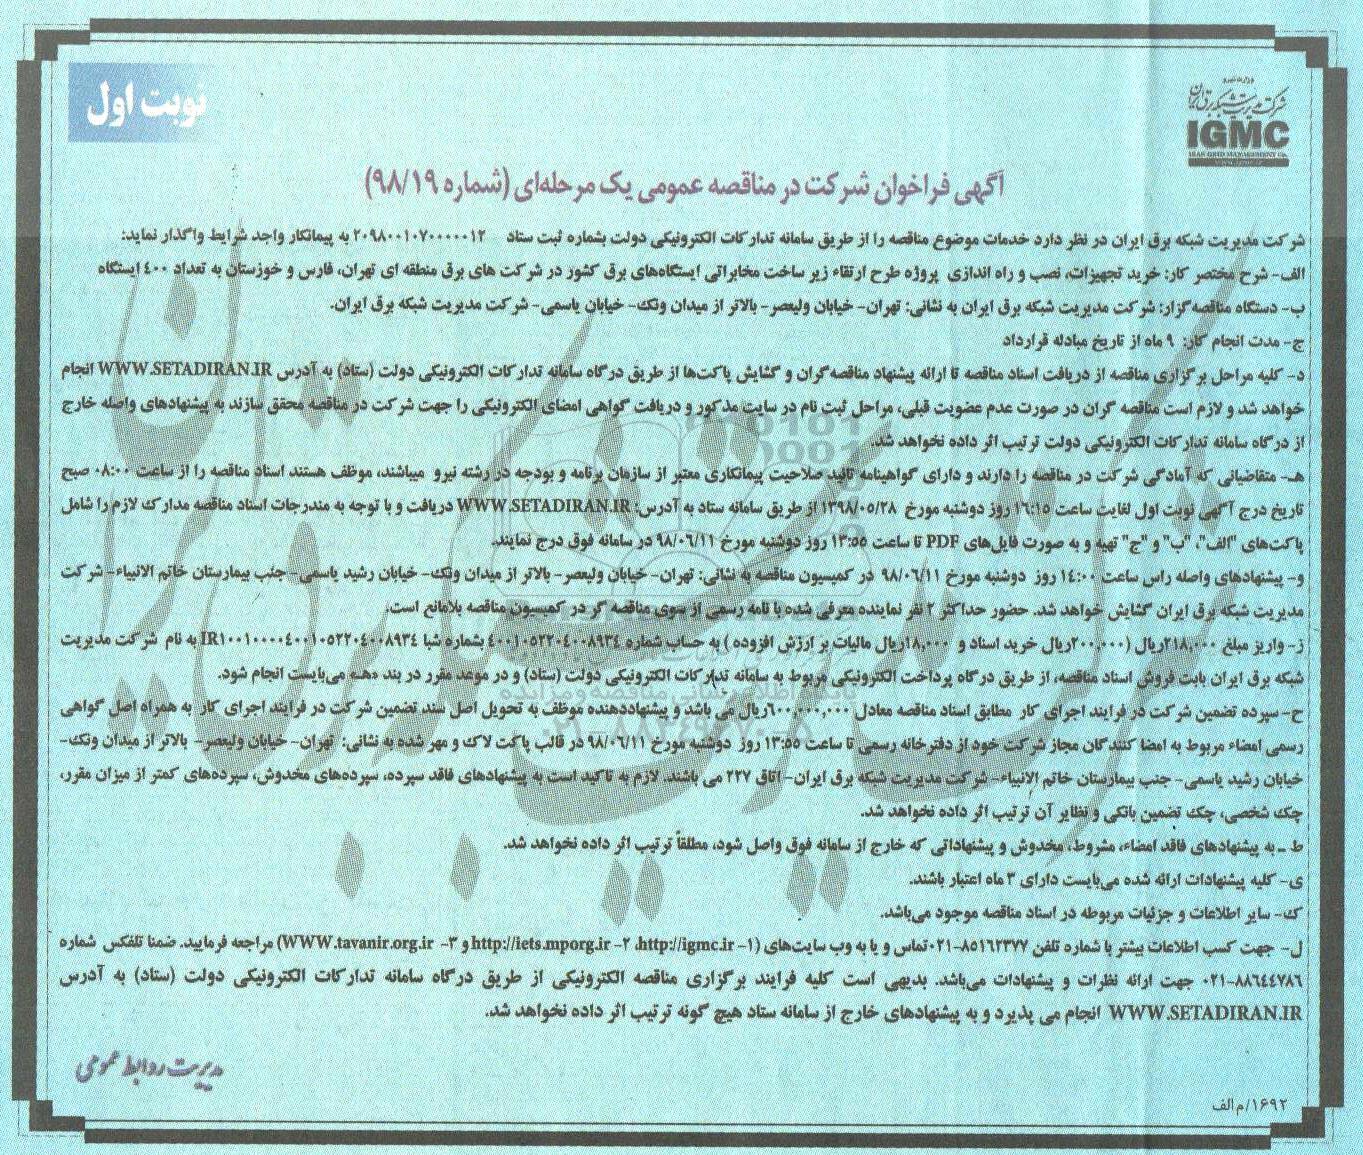 وزارت نیرو
شرکت مدیریت شبکه برق ایران
IGMC
IRAN GRID MANAGEMENT Co.
نوبت اول
آگهی فراخوان شرکت در مناقصه عمومی یک مرحله‌ای (شماره ۹۸/۱۹)
شرکت مدیریت شبکه برق ایران در نظر دارد خدمات موضوع مناقصه را از طریق سامانه تدارکات الکترونیکی دولت بشماره ثبت ستاد ۲۰۹۸۰۰۱۰۷۰۰۰۰۰۱۲ به پیمانکار واجد شرایط واگذار نماید:
الف- شرح مختصر کار: خرید تجهیزات، نصب و راه اندازی پروژه طرح ارتقاء زیر ساخت مخابراتی ایستگاه‌های برق کشور در شرکت های برق منطقه ای تهران، فارس و خوزستان به تعداد ۴۰۰ ایستگاه
ب- دستگاه مناقصه‌گزار: شرکت مدیریت شبکه برق ایران به نشانی: تهران- خیابان ولیعصر- بالاتر از میدان ونک- خیابان یاسمی- شرکت مدیریت شبکه برق ایران.
ج- مدت انجام کار: ۹ ماه از تاریخ مبادله قرارداد
د- کلیه مراحل برگزاری مناقصه از دریافت اسناد مناقصه تا ارائه پیشنهاد مناقصه‌گران و گشایش پاکت‌ها از طریق درگاه سامانه تدارکات الکترونیکی دولت (ستاد) به آدرس WWW.SETADIRAN.IR انجام
خواهد شد و لازم است مناقصه گران در صورت عدم عضویت قبلی، مراحل ثبت نام در سایت مذکور و دریافت گواهی امضای الکترونیکی را جهت شرکت در مناقصه محقق سازند به پیشنهادهای واصله خارج
از درگاه سامانه تدارکات الکترونیکی دولت ترتیب اثر داده نخواهد شد.
هـ- متقاضیانی که آمادگی شرکت در مناقصه را دارند و دارای گواهینامه تائید صلاحیت پیمانکاری معتبر از سازمان برنامه و بودجه در رشته نیرو میباشند، موظف هستند اسناد مناقصه را از ساعت ۰۸:۰۰ صبح
تاریخ درج آگهی نوبت اول لغایت ساعت ۱۶:۱۵ روز دوشنبه مورخ ۱۳۹۸/۰۵/۲۸ از طریق سامانه ستاد به آدرس: WWW.SETADIRAN.IR دریافت و با توجه به مندرجات اسناد مناقصه مدارک لازم را شامل
پاکت‌های "الف"، "ب" و "ج" تهیه و به صورت فایل‌های PDF تا ساعت ۱۳:۵۵ روز دوشنبه مورخ ۹۸/۰۶/۱۱ در سامانه فوق درج نمایند.
و- پیشنهادهای واصله راس ساعت ۱۴:۰۰ روز دوشنبه مورخ ۹۸/۰۶/۱۱ در کمیسیون مناقصه به نشانی: تهران- خیابان ولیعصر- بالاتر از میدان ونک- خیابان رشید یاسمی- جنب بیمارستان خاتم الانبیاء- شرکت
مدیریت شبکه برق ایران گشایش خواهد شد. حضور حداکثر ۲ نفر نماینده معرفی شده با نامه رسمی از سوی مناقصه گر در کمیسیون مناقصه بلامانع است.
ز- واریز مبلغ ۲۱۸,۰۰۰ریال (۲۰۰,۰۰۰ریال خرید اسناد و ۱۸,۰۰۰ریال مالیات بر ارزش افزوده ) به حساب شماره ۴۰۰۱۰۵۲۲۰۴۰۰۸۹۳۴ بشماره شبا IR۱۰۰۱۰۰۰۰۴۰۰۱۰۵۲۲۰۴۰۰۸۹۳۴ به نام شرکت مدیریت
شبکه برق ایران بابت فروش اسناد مناقصه، از طریق درگاه پرداخت الکترونیکی مربوط به سامانه تدارکات الکترونیکی دولت (ستاد) و در موعد مقرر در بند «هـ» می‌بایست انجام شود.
ح- سپرده تضمین شرکت در فرایند اجرای کار مطابق اسناد مناقصه معادل ۶۰۰,۰۰۰,۰۰۰ریال می باشد و پیشنهاددهنده موظف به تحویل اصل سند تضمین شرکت در فرایند اجرای کار به همراه اصل گواهی
رسمی امضاء مربوط به امضا کنندگان مجاز شرکت خود از دفترخانه رسمی تا ساعت ۱۳:۵۵ روز دوشنبه مورخ ۹۸/۰۶/۱۱ در قالب پاکت لاک و مهر شده به نشانی: تهران- خیابان ولیعصر- بالاتر از میدان ونک-
خیابان رشید یاسمی- جنب بیمارستان خاتم الانبیاء- شرکت مدیریت شبکه برق ایران- اتاق ۲۲۷ می باشند. لازم به تاکید است به پیشنهادهای فاقد سپرده، سپرده‌های مخدوش، سپرده‌های کمتر از میزان مقرر،
چک شخصی، چک تضمین بانکی و نظایر آن ترتیب اثر داده نخواهد شد.
ط - به پیشنهادهای فاقد امضاء، مشروط، مخدوش و پیشنهاداتی که خارج از سامانه فوق واصل شود، مطلقاً ترتیب اثر داده نخواهد شد.
ی- کلیه پیشنهادات ارائه شده می‌بایست دارای ۳ ماه اعتبار باشند.
ک- سایر اطلاعات و جزئیات مربوطه در اسناد مناقصه موجود می‌باشد.
ل- جهت کسب اطلاعات بیشتر با شماره تلفن ۸۵۱۶۲۳۷۷-۰۲۱تماس و یا به وب سایت‌های (۱- http://igmc.ir، ۲- http://iets.mporg.ir و ۳- WWW.tavanir.org.ir) مراجعه فرمایید. ضمنا تلفکس شماره
۸۸۶۴۴۷۸۶-۰۲۱ جهت ارائه نظرات و پیشنهادات می‌باشد. بدیهی است کلیه فرایند برگزاری مناقصه الکترونیکی از طریق درگاه سامانه تدارکات الکترونیکی دولت (ستاد) به آدرس
WWW.SETADIRAN.IR انجام می پذیرد و به پیشنهادهای خارج از سامانه ستاد هیچ گونه ترتیب اثر داده نخواهد شد.
مدیریت روابط عمومی
۱۶۹۲/م الف